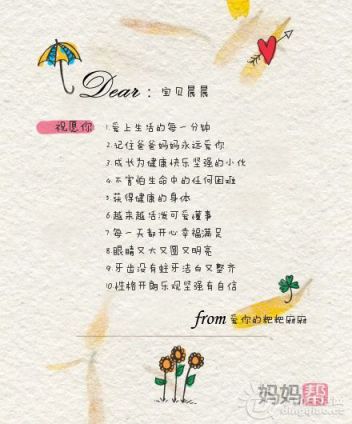 Dear：宝贝晨晨
祝愿你
1.爱上生活的每一分钟
2.记住爸爸妈妈永远爱你
3.成长为健康快乐坚强的小伙
4.不害怕生命中的任何困难
5.获得健康的身体
6.越来越活泼可爱懂事
7.每一天都开心幸福满足
8.眼睛又大又圆又明亮
9.牙齿没有蛀牙洁白又整齐
10.性格开朗乐观坚强有自信
from 爱你的粑粑麻麻
妈妈帮